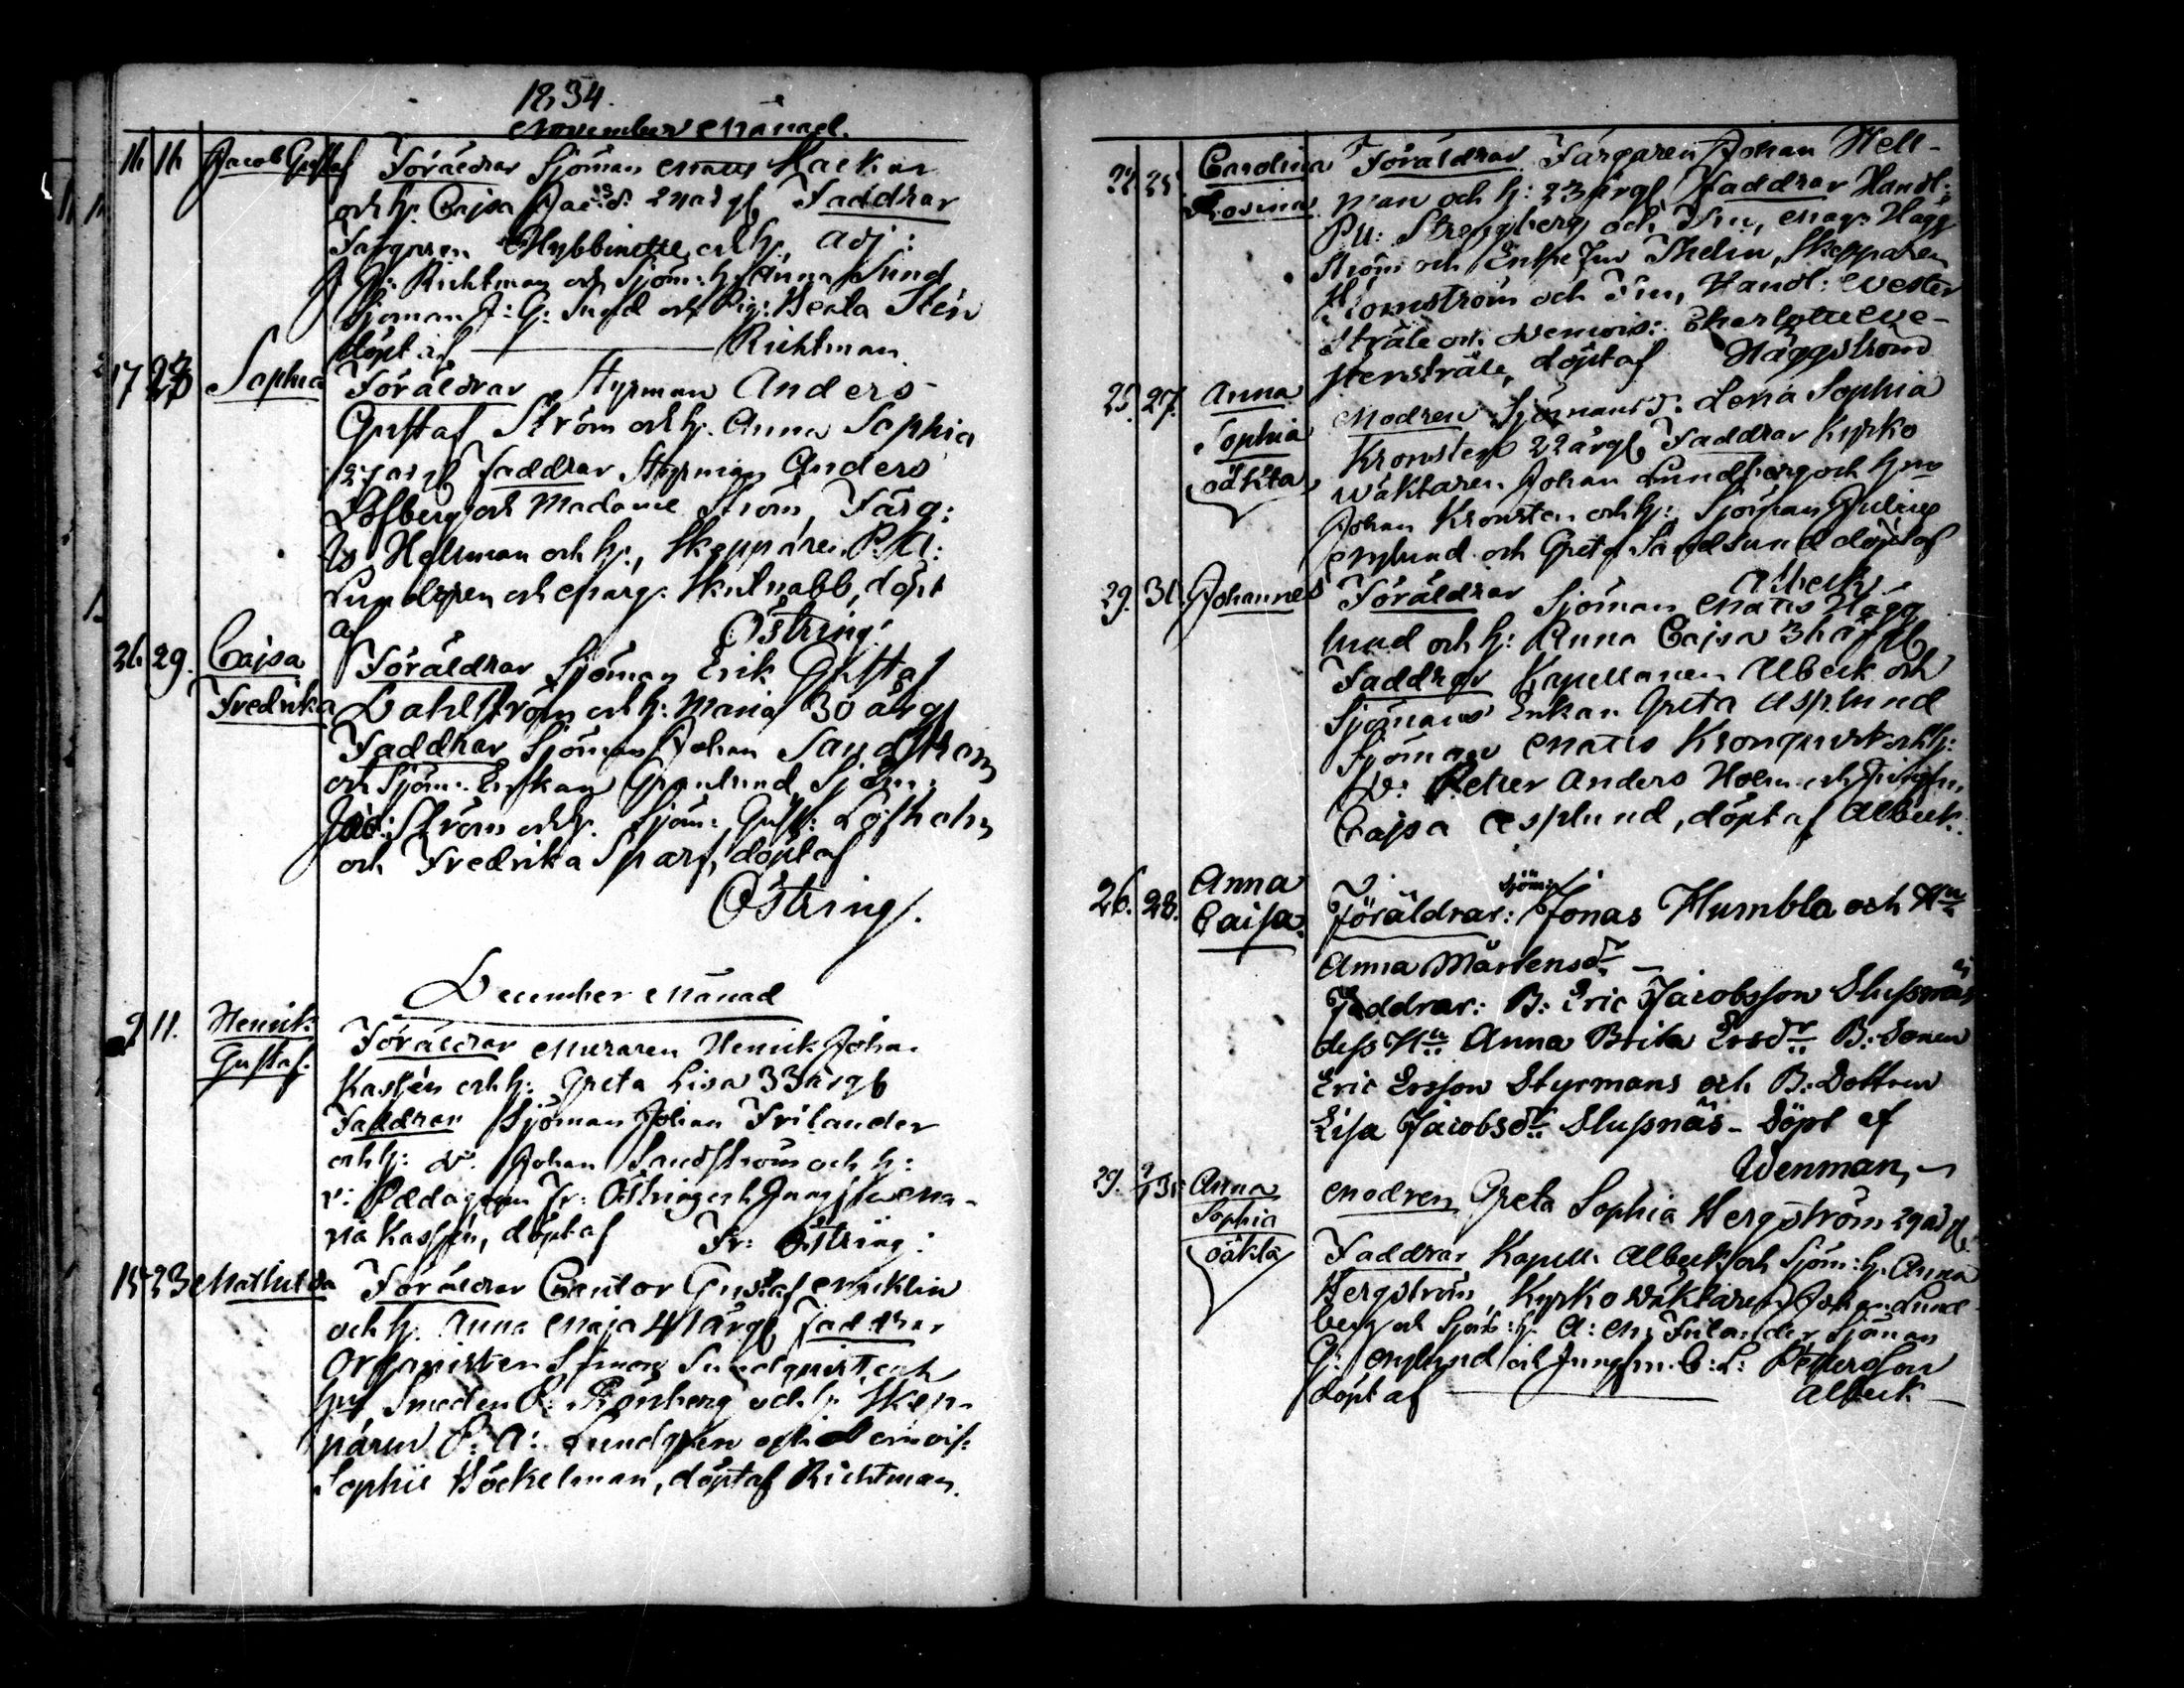 1834.
November Månad.
16 16 Jacob Gustaf Föräldrar Sjöman Matts
och h: Cajsa Jac:d: årgl Faddrar
Färgaren Hubbinette och h, adj:
J. G: Richtman och Sjöm: h. Anna Sund
Sjöman J: G: Sund och Pig: Beata Stén
döpt af Richtman
17 23 Sophia Föräldrar Styrman Anders
Gustaf Ström och h. Anna Sophia
27 årgl Faddrar Styrman Anders
Löfberg och Madame Ström, Färg:
Is. Hellman och h:, Skepparen P. A:
Lundgren och Marg: Skutnabb, döpt
af Östring.
26 29. Cajsa Fredrika Föräldrar Sjöman Erik Gustaf
Dahlström och h: Maria 30 årgl
Faddrar Sjöman Johan Sandström
och Sjöm: Enkan Grönlund Sjöm:
Jac: Ström och h. Sjöm: Gust: Löfholm
och Fredrika Sparf, döpt af
Östring.
December Månad
9 11. Henrik Gustaf. Föräldrar Muraren Henrik Joha.
Kassén och h: Greta Lisa 33 årgl
Faddrar Sjöman Johan Frilander
och h: D:o Johan Sandström och h:
v: Pædagogen Fr: Östring och Jungfru Ma-
ria Kassén, döpt af Fr: Östring.
15 23 Mathilda Föräldrar Cantor Gustaf
och h. Anna Maja 41 årgl Faddrar
Organisten Simon Sundqvist och
hu Smeden Rönberg och h. Skep-
paren P: A: Lundgren och Demois:
Sophie Böckelman, döpt af Richtman.
22. 25 Carolina Rosina Föräldrar Färgaren Johan Hell-
man och h: 23 årgl Faddrar Handl:
Strengberg och Fru, Mag: Hägg
ström och Enke Fru Thelin, Skepparen
Blomström och Fru, Handl: Wester
stråle och Demois: Charlotte We-
sterstråle, döpt af Häggström
25. 27. Anna Sophia oäkta Modren Sjömansd: Lena Sophia
Kronsten 22 årgl Faddrar Kyrko
wäktaren Johan Lundberg och h
Johan Kronsten och h: Sjöman Julius
Englund och Greta Sandsund döpt af
Albeck.
29. 31. Johannes Föräldrar Sjöman Matts Hägg
lund och h: Anna Cajsa 36 årgl
Faddrar Kapellanen Albeck och
Sjömans Enkan Greta Asplund
Sjöman Matts Kronqvist och h:
D: Petter Anders Holm och Jungfru
Cajsa Asplund, döpt af Albeck.
26. 28. Anna Caisa. Föräldrar: Sjöm: Jonas Humbla och Hu
Anna Mårtensdr
Faddrar: B: Eric Jacobsson Slussnäs
dess Hu Anna Brita Ersdr B: Sonen
Eric Ersson Styrmans och B: Dottren
Lisa Jacobsdr Slussnäs - Döpt af
Wenman,
29. Anna Sophia oäkta Modren Greta Sophia Bergström 29 årgl
Faddrar Kapell: Albeck och Sjöm: h. Anna
Bergström, Kyrkowäktaren Johan Lund-
berg och Sjöm: h. A: M: Frilander Sjöman
G: Englund och Jungfru C: L: Petterson
döpt af Albeck